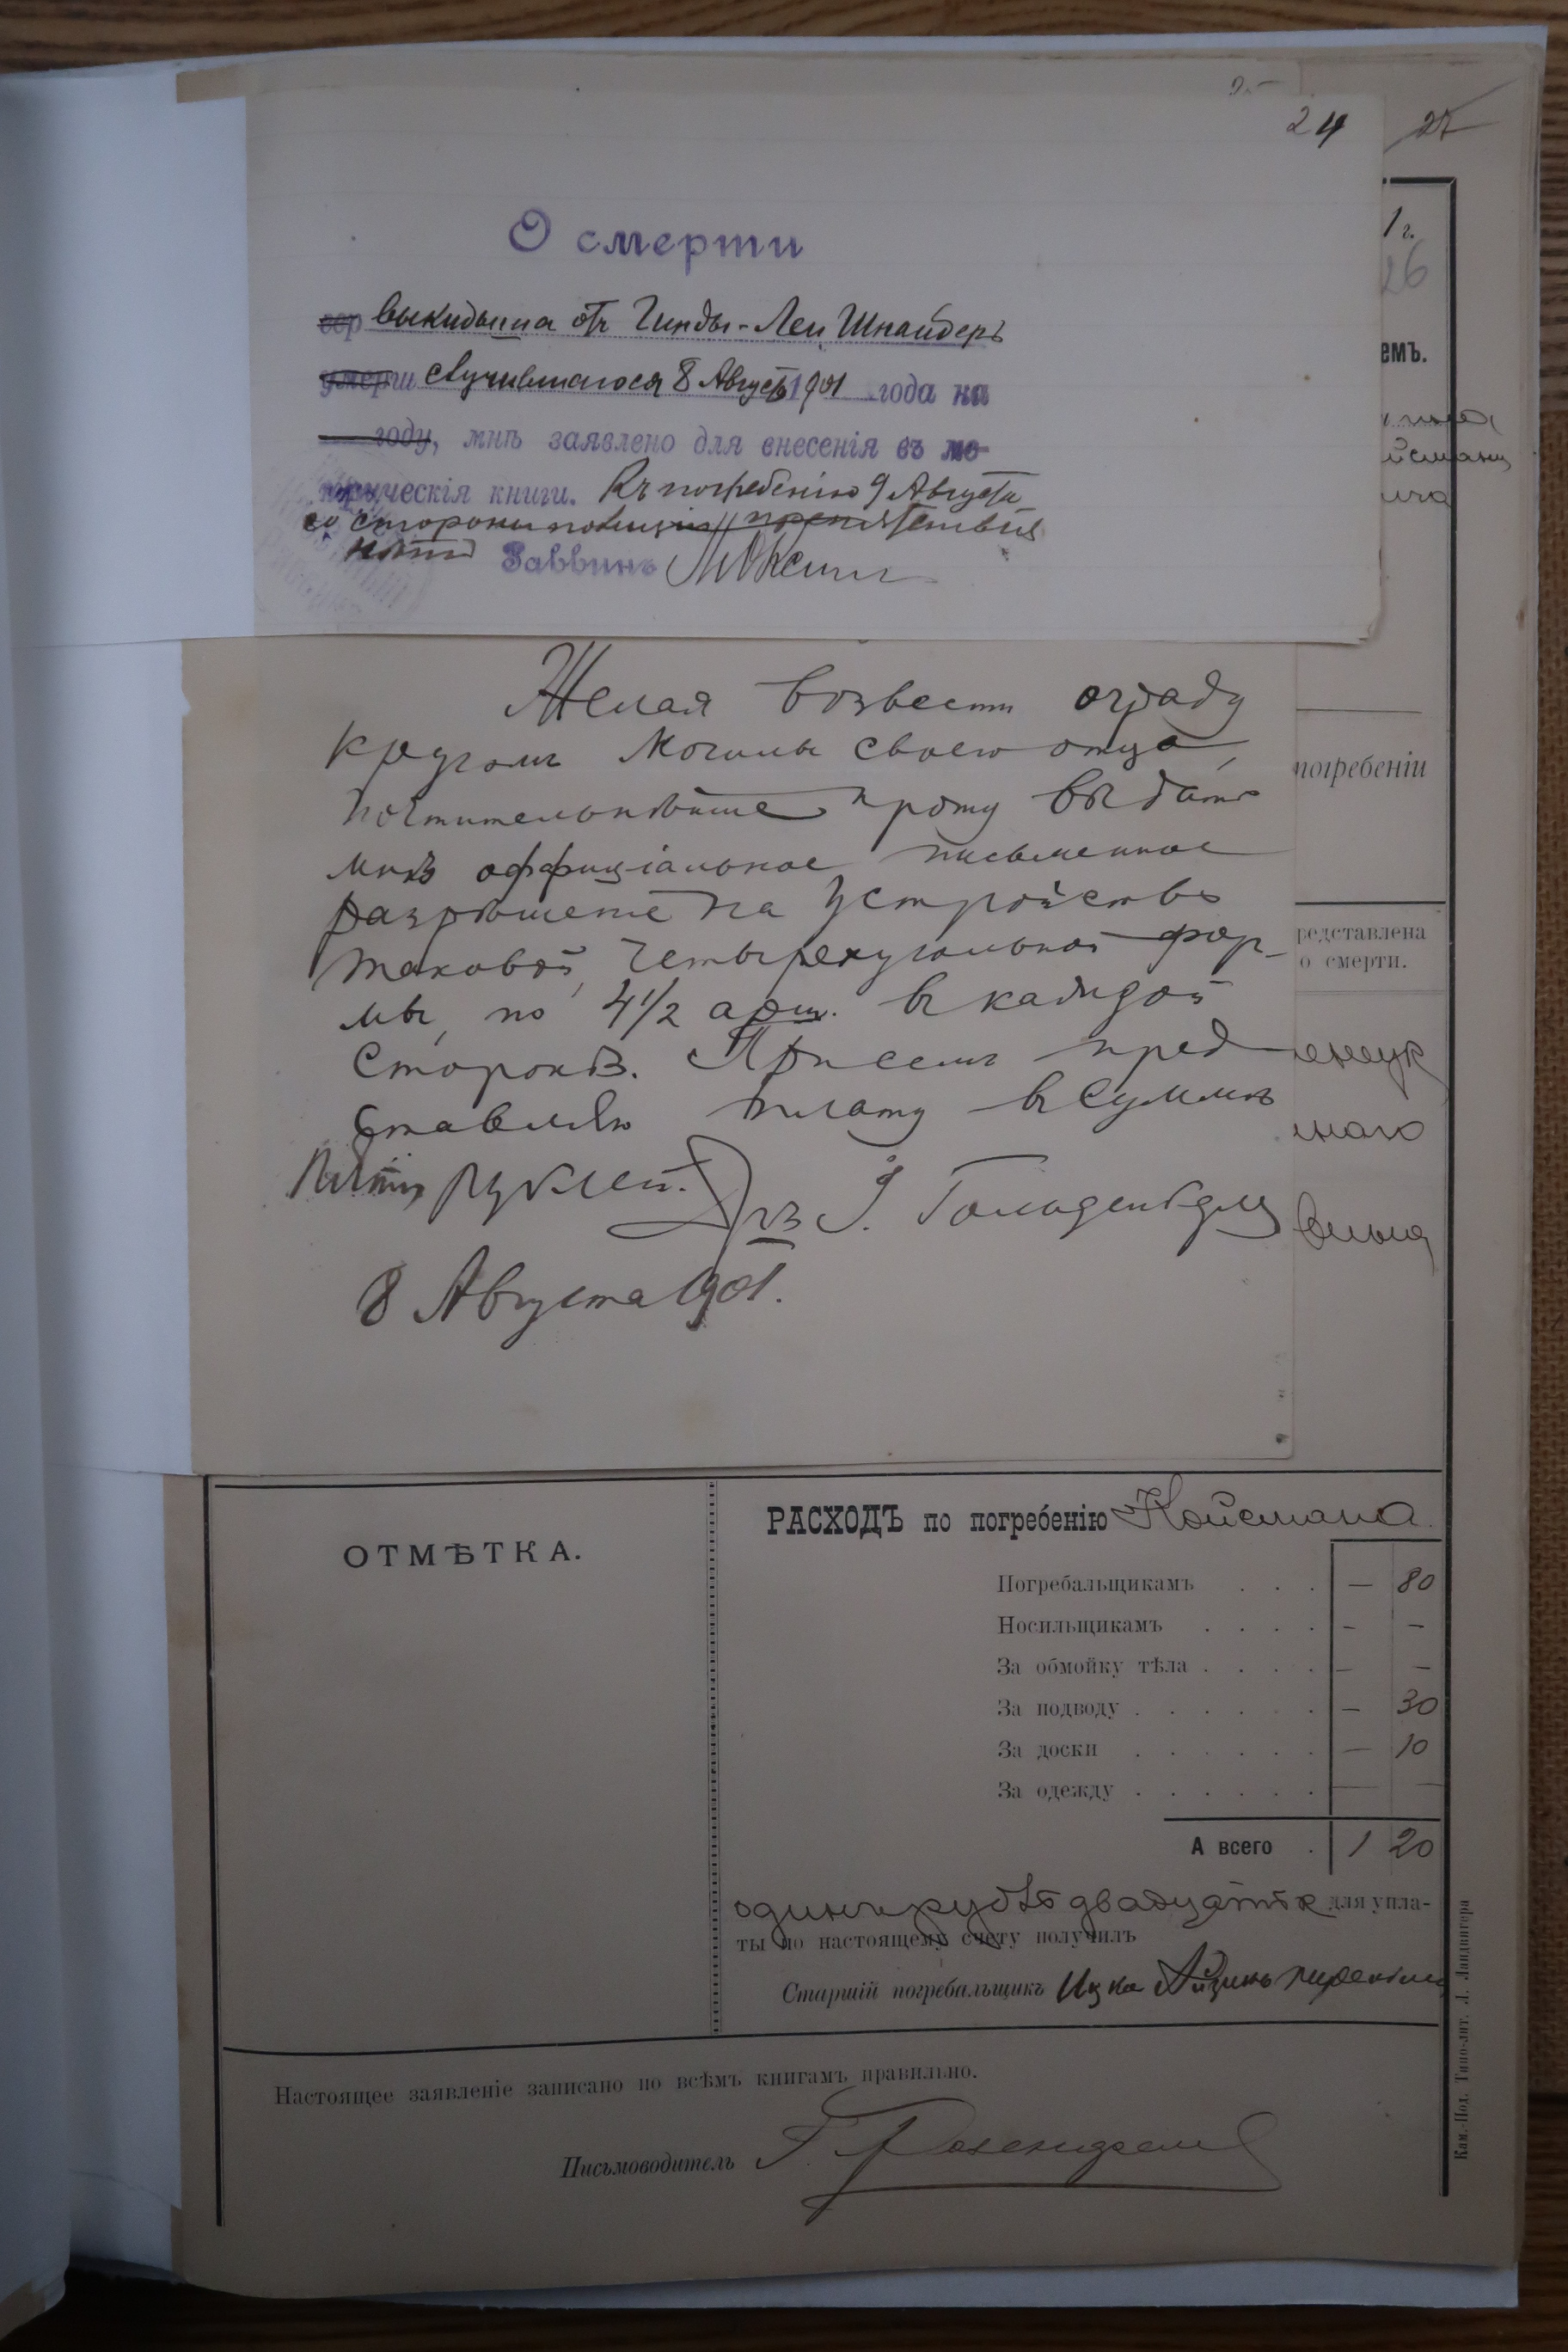 24
27
О смерти
выкидыша отъ Гинды-Леи Шнайдеръ
случившагося 8 Августа 1901 года на
году, мнѣ заявлено для внесенія въ ме-
трическія книги. Къ погребенію 9 Августа
со стороны полиціи препятствія
нѣтъ Раввинъ
1 г.
26
емъ.
погребеніи
редставлена
о смерти.
наго
Желая возвести ограду
кругомъ могилы своего отца,
почтительнѣйше прошу выдать
мнѣ оффиціальное письменное
разрѣшеніе на устройство
таковой, четырехугольной фор-
мы, по 4 1/2 арш. въ каждой
сторонѣ. При семъ пред
ставляю плату въ суммѣ
пяти рублей. Д-ръ І.
8 Августа 1901.
ОТМѢТКА.
РАСХОДЪ по погребенію Койсмана
Погребальщикамъ . . . — 80
Носильщикамъ . . . . — —
За обмойку тѣла . . . . — —
За подводу . . . . . . — 30
За доски . . . . . . — 10
За одежду . . . . . . — —
А всего . 1 20
одинъ рубль двадцать к для упла-
ты по настоящему счету получилъ
Старшій погребальщикъ Ицко
Настоящее заявленіе записано по всѣмъ книгамъ правильно.
Письмоводитель
Кам.-Под. Типо-лит. Л. Ландвигера